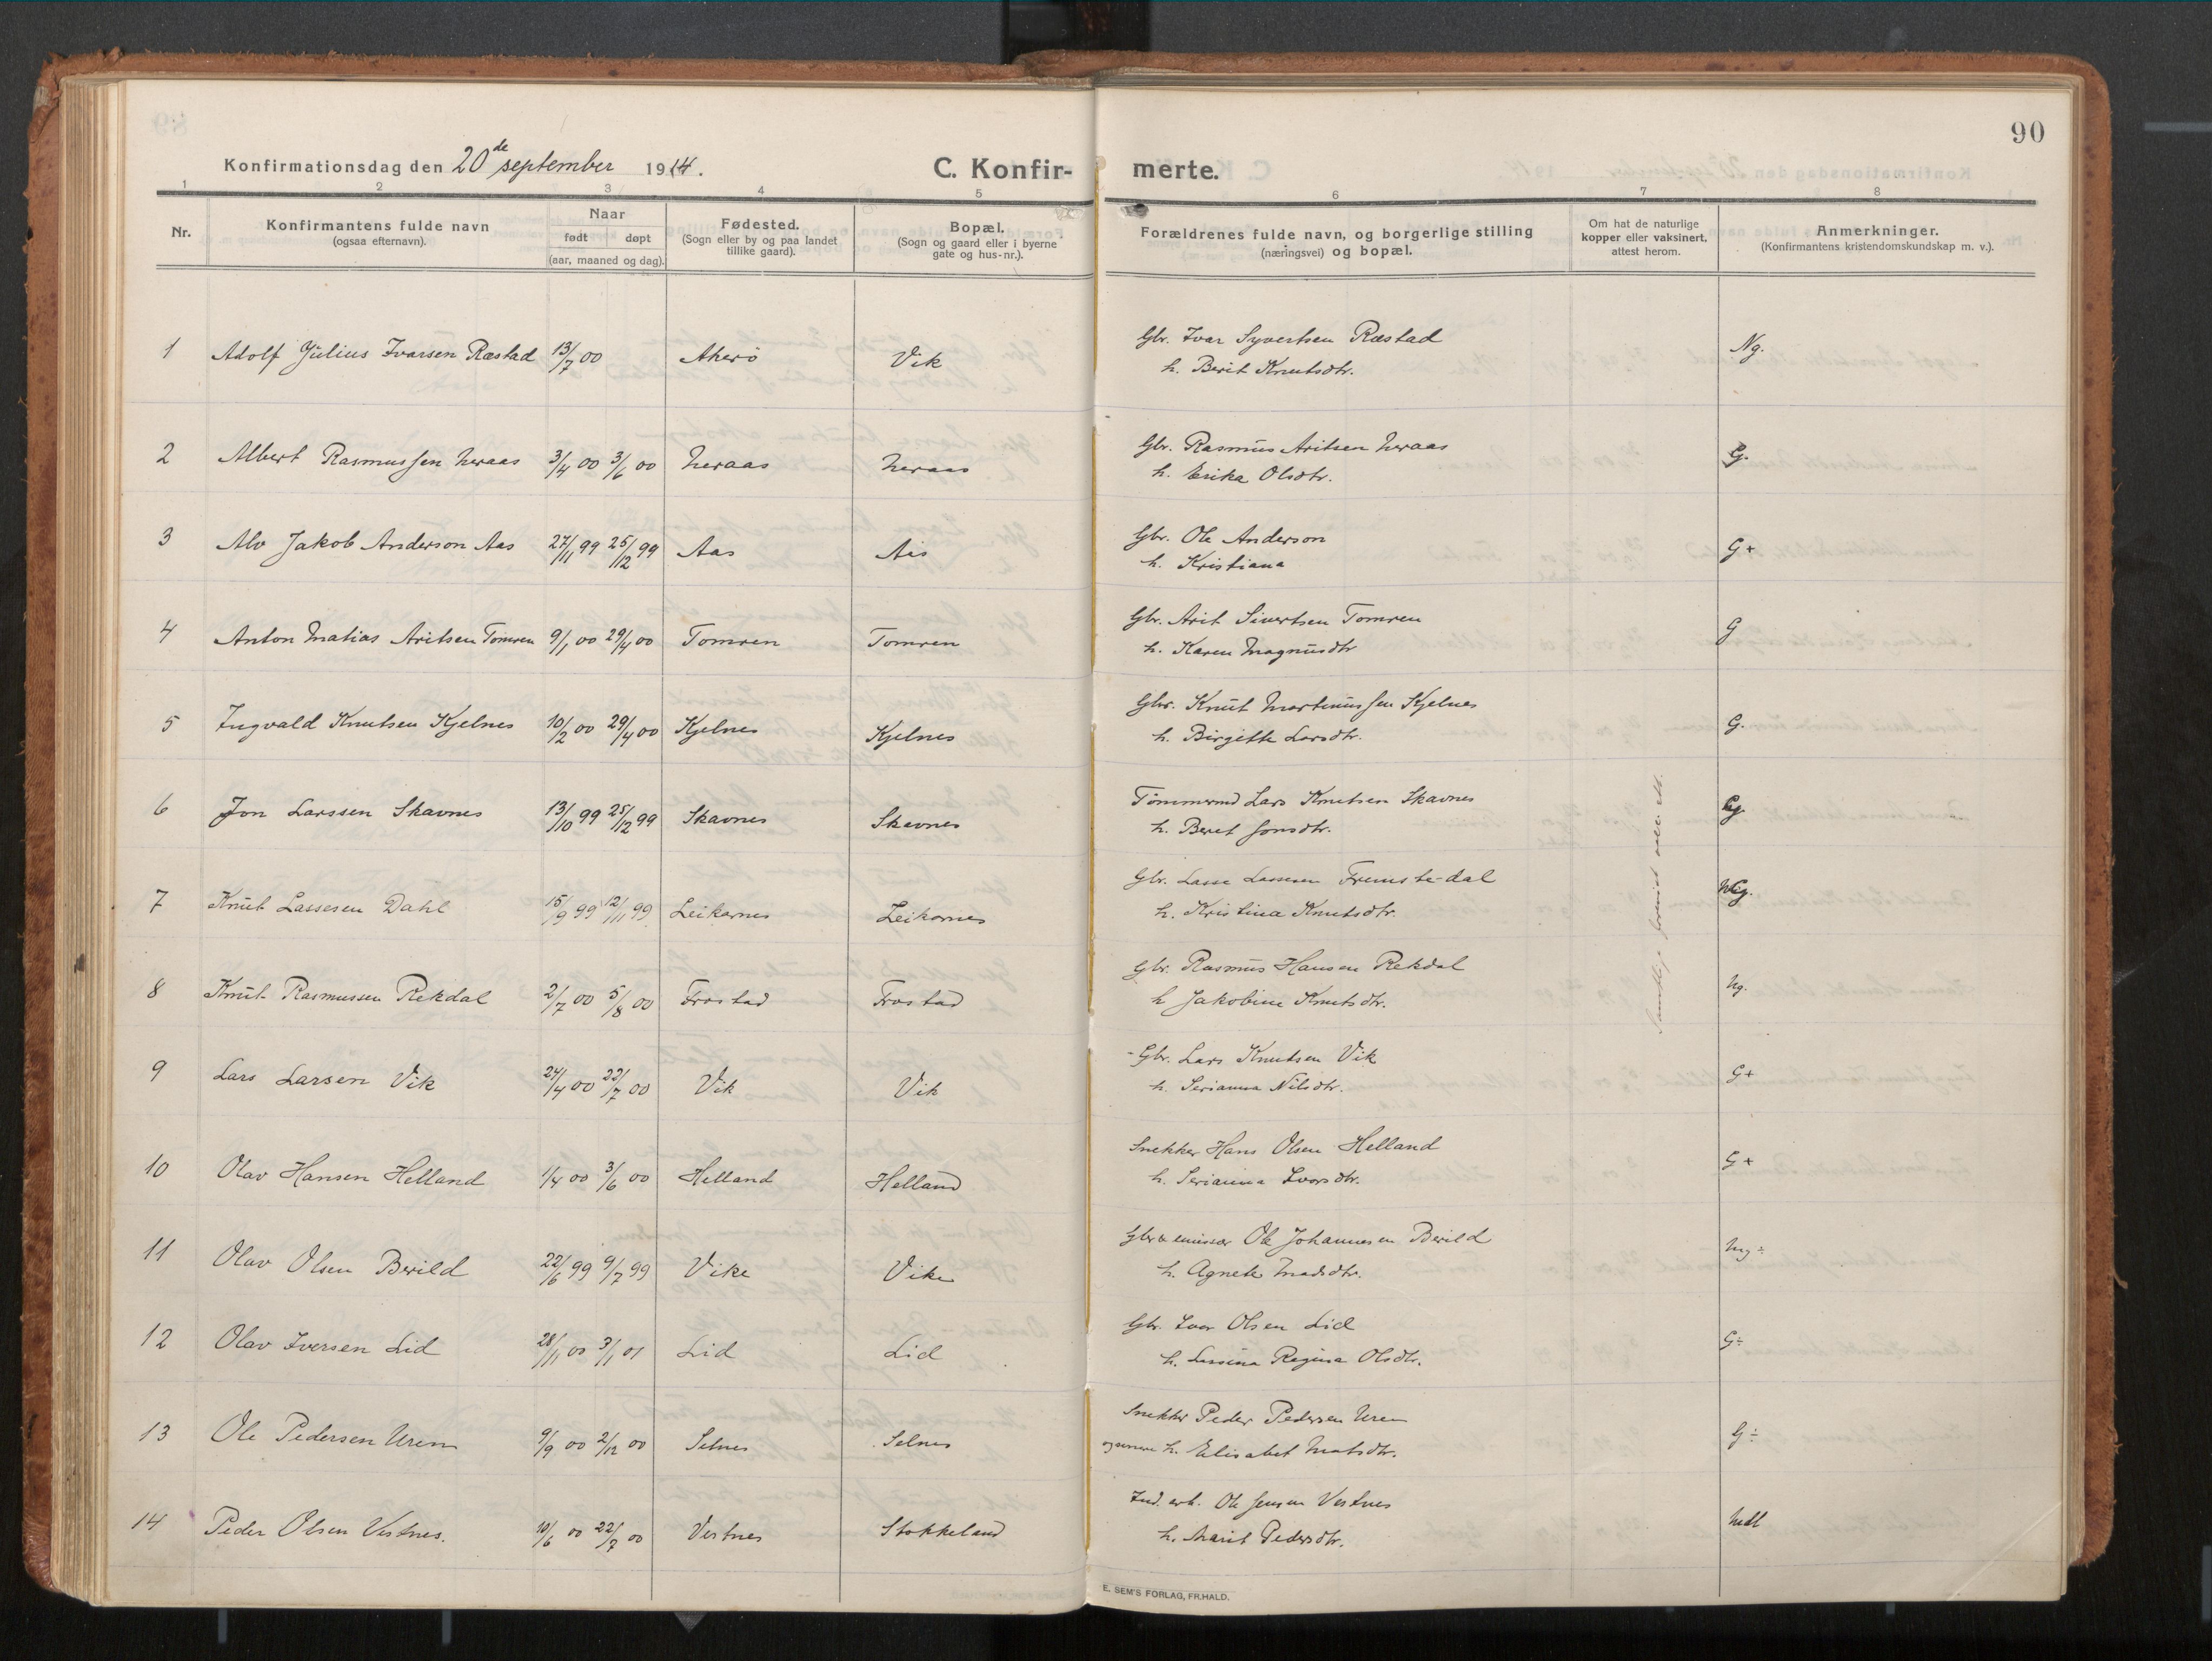 90
Konfirmationsdag den 20de september 1914.
C. Konfir-
merte.
1 2 3 4 5 6 7 8
Nr.
Konfirmantens fulde navn
(ogsaa efternavn).
Naar
født døpt
(aar, maaned og dag).
Fødested.
(Sogn eller by og paa landet
tillike gaard).
Bopæl.
(Sogn og gaard eller i byerne
gate og hus-nr.).
Forældrenes fulde navn, og borgerlige stilling
(næringsvei) og bopæl.
Om hat de naturlige
kopper eller vaksinert,
attest herom.
Anmerkninger.
(Konfirmantens kristendomskundskap m. v.).
1 Adolf Julius Ivarsen Ræstad 13/7 00 Akerö Vik
Gbr. Ivar Syvertsen Ræstad
h. Berit Knutsdtr.
Ng.
2 Albert Rasmussen Neraas 3/4 00 3/6 00 Neraas Neraas
Gbr. Rasmus Aritsen Neraas
h. Erika Olsdtr.
G.
3 Alv Jakob Anderson Aas 27/11 99 25/12 99 Aas Aas
Gbr. Ole Anderson
h. Kristiana
G+
4 Anton Matias Aritsen Tomren 9/1 00 29/4 00 Tomren Tomren
Gbr. Arit Sivertsen Tomren
h. Karen Magnusdtr
G
5 Ingvald Knutsen Kjelnes 10/2 00 29/4 00 Kjelnes Kjelnes
Gbr. Knut Martinussen Kjelnes
h. Birgitte Larsdtr.
G.
6 Jon Larssen Skavnes 13/10 99 25/12 99 Skavnes Skavnes
Tømmermd Lars Knutsen Skavnes
h. Beret Jonsdtr.
7 Knut Lassesen Dahl 15/9 99 12/11 99 Leikarnes Leikarnes
Gbr. Lasse Lassesen Fremste-dal
h. Kristina Knutsdtr.
8 Knut Rasmussen Rekdal 2/7 00 5/8 00 Frostad Frostad
Gbr. Rasmus Hansen Rekdal
h Jakobine Knutsdtr.
Ng.
9 Lars Larsen Vik 24/4 00 22/7 00 Vik Vik
Gbr. Lars Knutsen Vik
h. Serianna Nilsdtr.
G+
10 Olav Hansen Helland 1/4 00 3/6 00 Helland Helland
Snekker Hans Olsen Helland
h. Serianna Ivarsdtr.
G+
11 Olav Olsen Berild 22/6 99 9/7 99 Vike Vike
Gbr & emissær Ole Johannesen Berild
h. Agnete Madsdtr.
Mg ÷
12 Olav Iversen Lid 28/11 00 3/1 01 Lid Lid
Gbr. Iver Olsen Lid
h. Lassina Regina Olsdtr.
G÷
13 Ole Pedersen Urem 9/9 00 2/12 00 Selnes Selnes
Snekker Peder Pedersen Urem
h. Elisabet Matsdtr.
G÷
14 Peder Olsen Vestnes. 10/6 00 22/7 00 Vestnes Stokkeland
Ind. arb. Ole Jensen Vestnes
h. Marit Pedersdtr.
E. SEM'S FORLAG, FR.HALD.